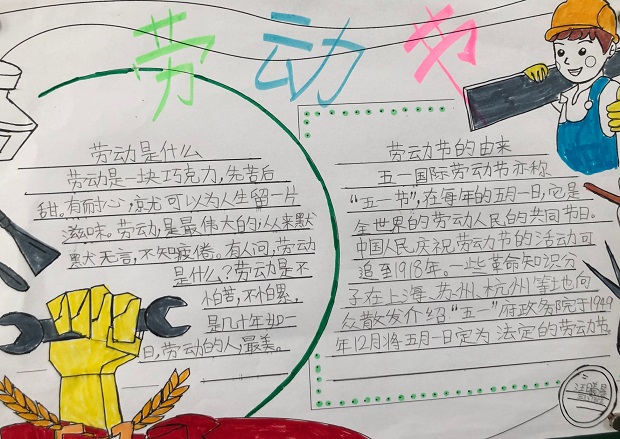 劳动节
劳动是什么
劳动是一块巧克力,先苦后
甜。有耐心,你就可以为人生留一片
滋味。劳动,是最伟大的,从来默
默无言,不知疲倦。有人问,劳动
是什么?劳动是不
怕苦,不怕累,
是几十年如一
日,劳动的人,最美。
劳动节的由来
五一国际劳动节亦称
“五一节”,在每年的五月一日,它是
全世界的劳动人民的共同节日。
中国人民庆祝劳动节的活动可
追至1918年。一些革命知识分
子在上海、苏州、杭州等地向
众散发介绍“五一”府政务院于1949
年12月将五月一日定为法定的劳动节